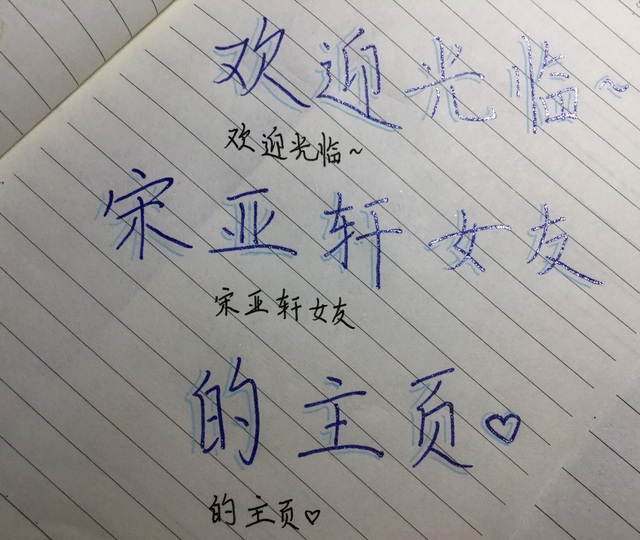 欢迎光临~
欢迎光临~
宋亚轩女友
宋亚轩女友
的主页♡
的主页♡